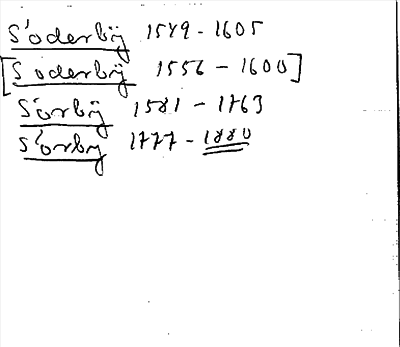 S'oderbÿ 1549 - 1605
[Soderbÿ 1556 - 1600]
S'orbÿ 1581 - 1763
S'orbÿ 1777 - 1880